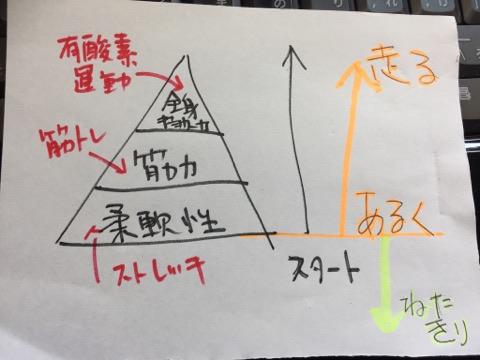 有酸素
運動
走る
全身
筋トレ
筋力
あるく
柔軟性
ストレッチ
スタート
ねた
きり